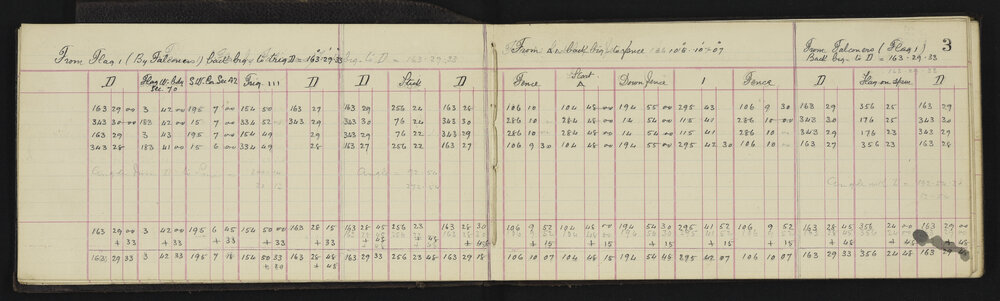 From Flag 1 (By Falconers) back brg to trig D = 163·29·33
D Flag W. Bdy Sec. 70 S.W. Cor Sec 42 Trig III D D Stick D
163 29 00 3 42 00 195 7 00 154 50 163 29 163 29 256 24 163 28
343 30 00 183 42 00 15 7 00 334 52 343 29 343 30 76 24 343 30
163 29 3 43 195 7 00 154 49 29 343 29 76 22 343 29
343 28 183 41 00 15 6 00 334 49 28 163 27 256 22 163 27
163 29 00 3 42 00 195 6 45 154 50 00 163 28 15 163 28 45 256 23 163 28 30
+ 33 + 33 + 33 + 33 + 33 + 48 + 48 + 48
163 29 33 3 42 33 195 7 18 154 50 33 163 28 48 163 29 33 256 23 48 163 29 18
+ 48
3
From Δ1 back brg to fence 106·10·07
From Falconers (Flag 1)
Back brg to D = 163·29·33
Fence Start A Down fence 1 Fence D Flag on spur D
106 10 104 48 00 194 55 00 295 43 106 9 30 163 29 356 25 163 29
286 10 284 48 00 14 54 00 115 41 286 10 00 343 30 176 25 343 30
286 10 284 48 00 14 54 00 115 41 286 10 343 29 176 23 343 29
106 9 30 104 48 00 194 55 00 295 42 30 106 10 163 27 356 23 163 27
106 9 52 104 48 00 194 54 30 295 41 52 106 9 52 163 28 45 356 24 00 163 29
+ 15 + 15 + 15 + 15 + 48 + 48 + 48
106 10 07 104 48 15 194 54 45 295 42 07 106 10 07 163 29 33 356 24 48 163 29